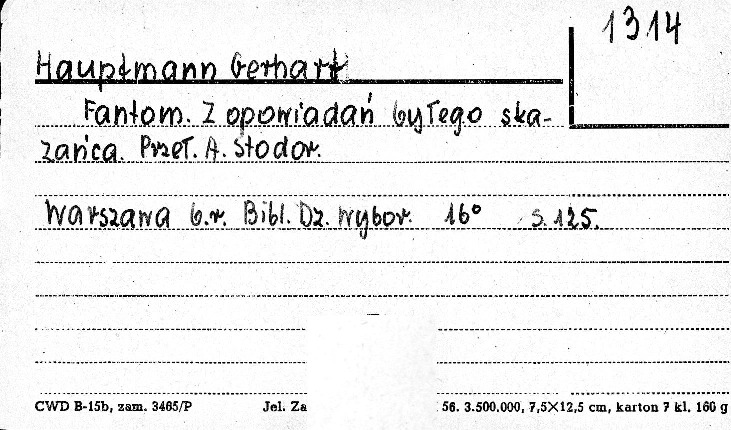 1314
Hauptmann Gerhart
Fantom. Z opowiadań byłego ska-
zańca. Przeł. A. Stodor.
Warszawa b.r. Bibl. Dz. Wybor. 16° s. 125.
CWD B-15b, zam. 3465/P Jel. Za 56. 3.500.000, 7,5×12,5 cm, karton 7 kl. 160 g